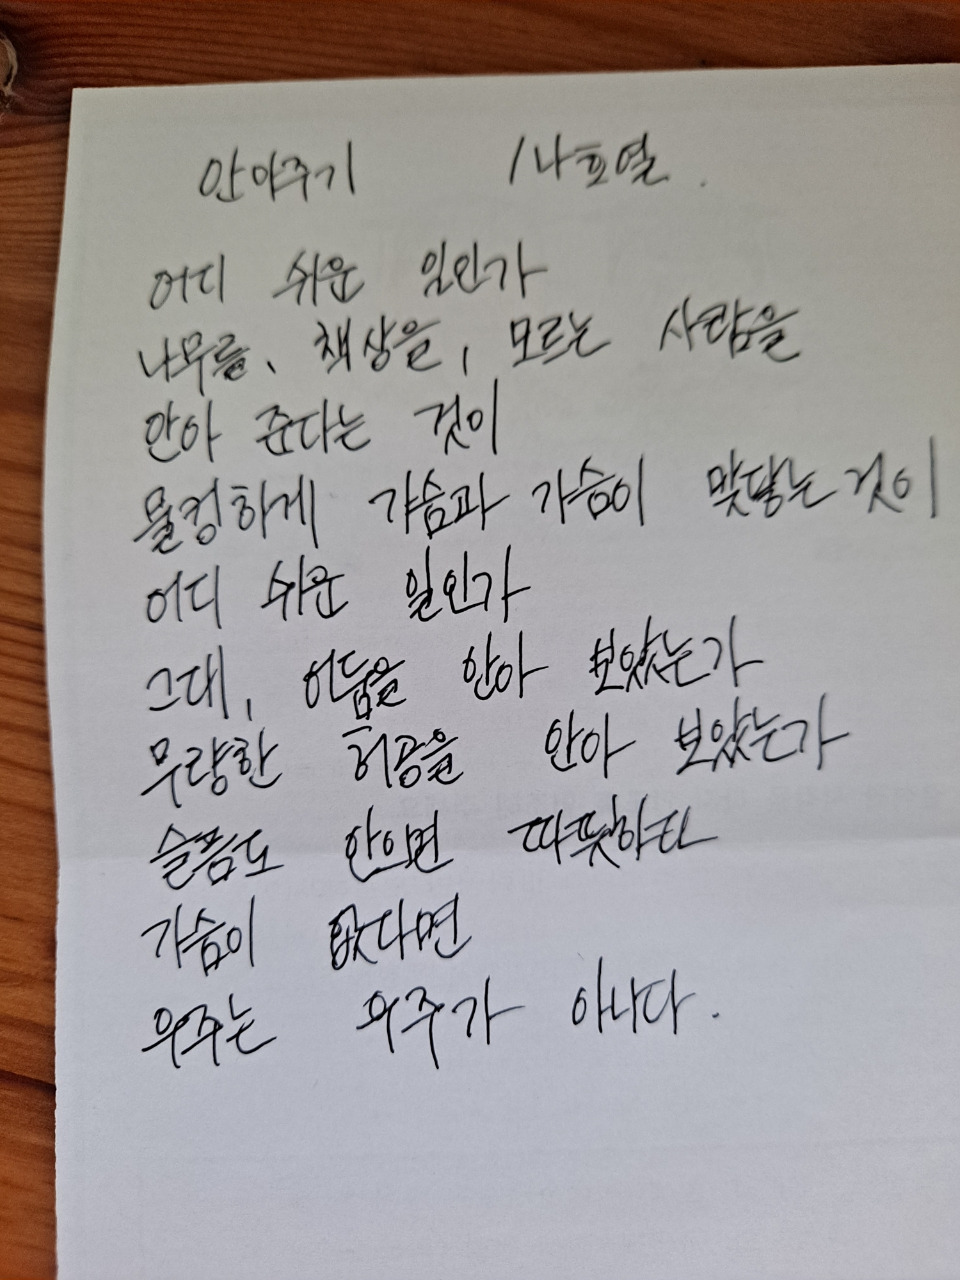 안아주기 /나호열.
어디 쉬운 일인가
나무를, 책상을, 모르는 사람을
안아 준다는 것이
물컹하게 가슴과 가슴이 맞닿는 것이
어디 쉬운 일인가
그대, 어둠을 안아 보았는가
무량한 허공을 안아 보았는가
슬픔도 안으면 따뜻하다
가슴이 없다면
우주는 우주가 아니다.